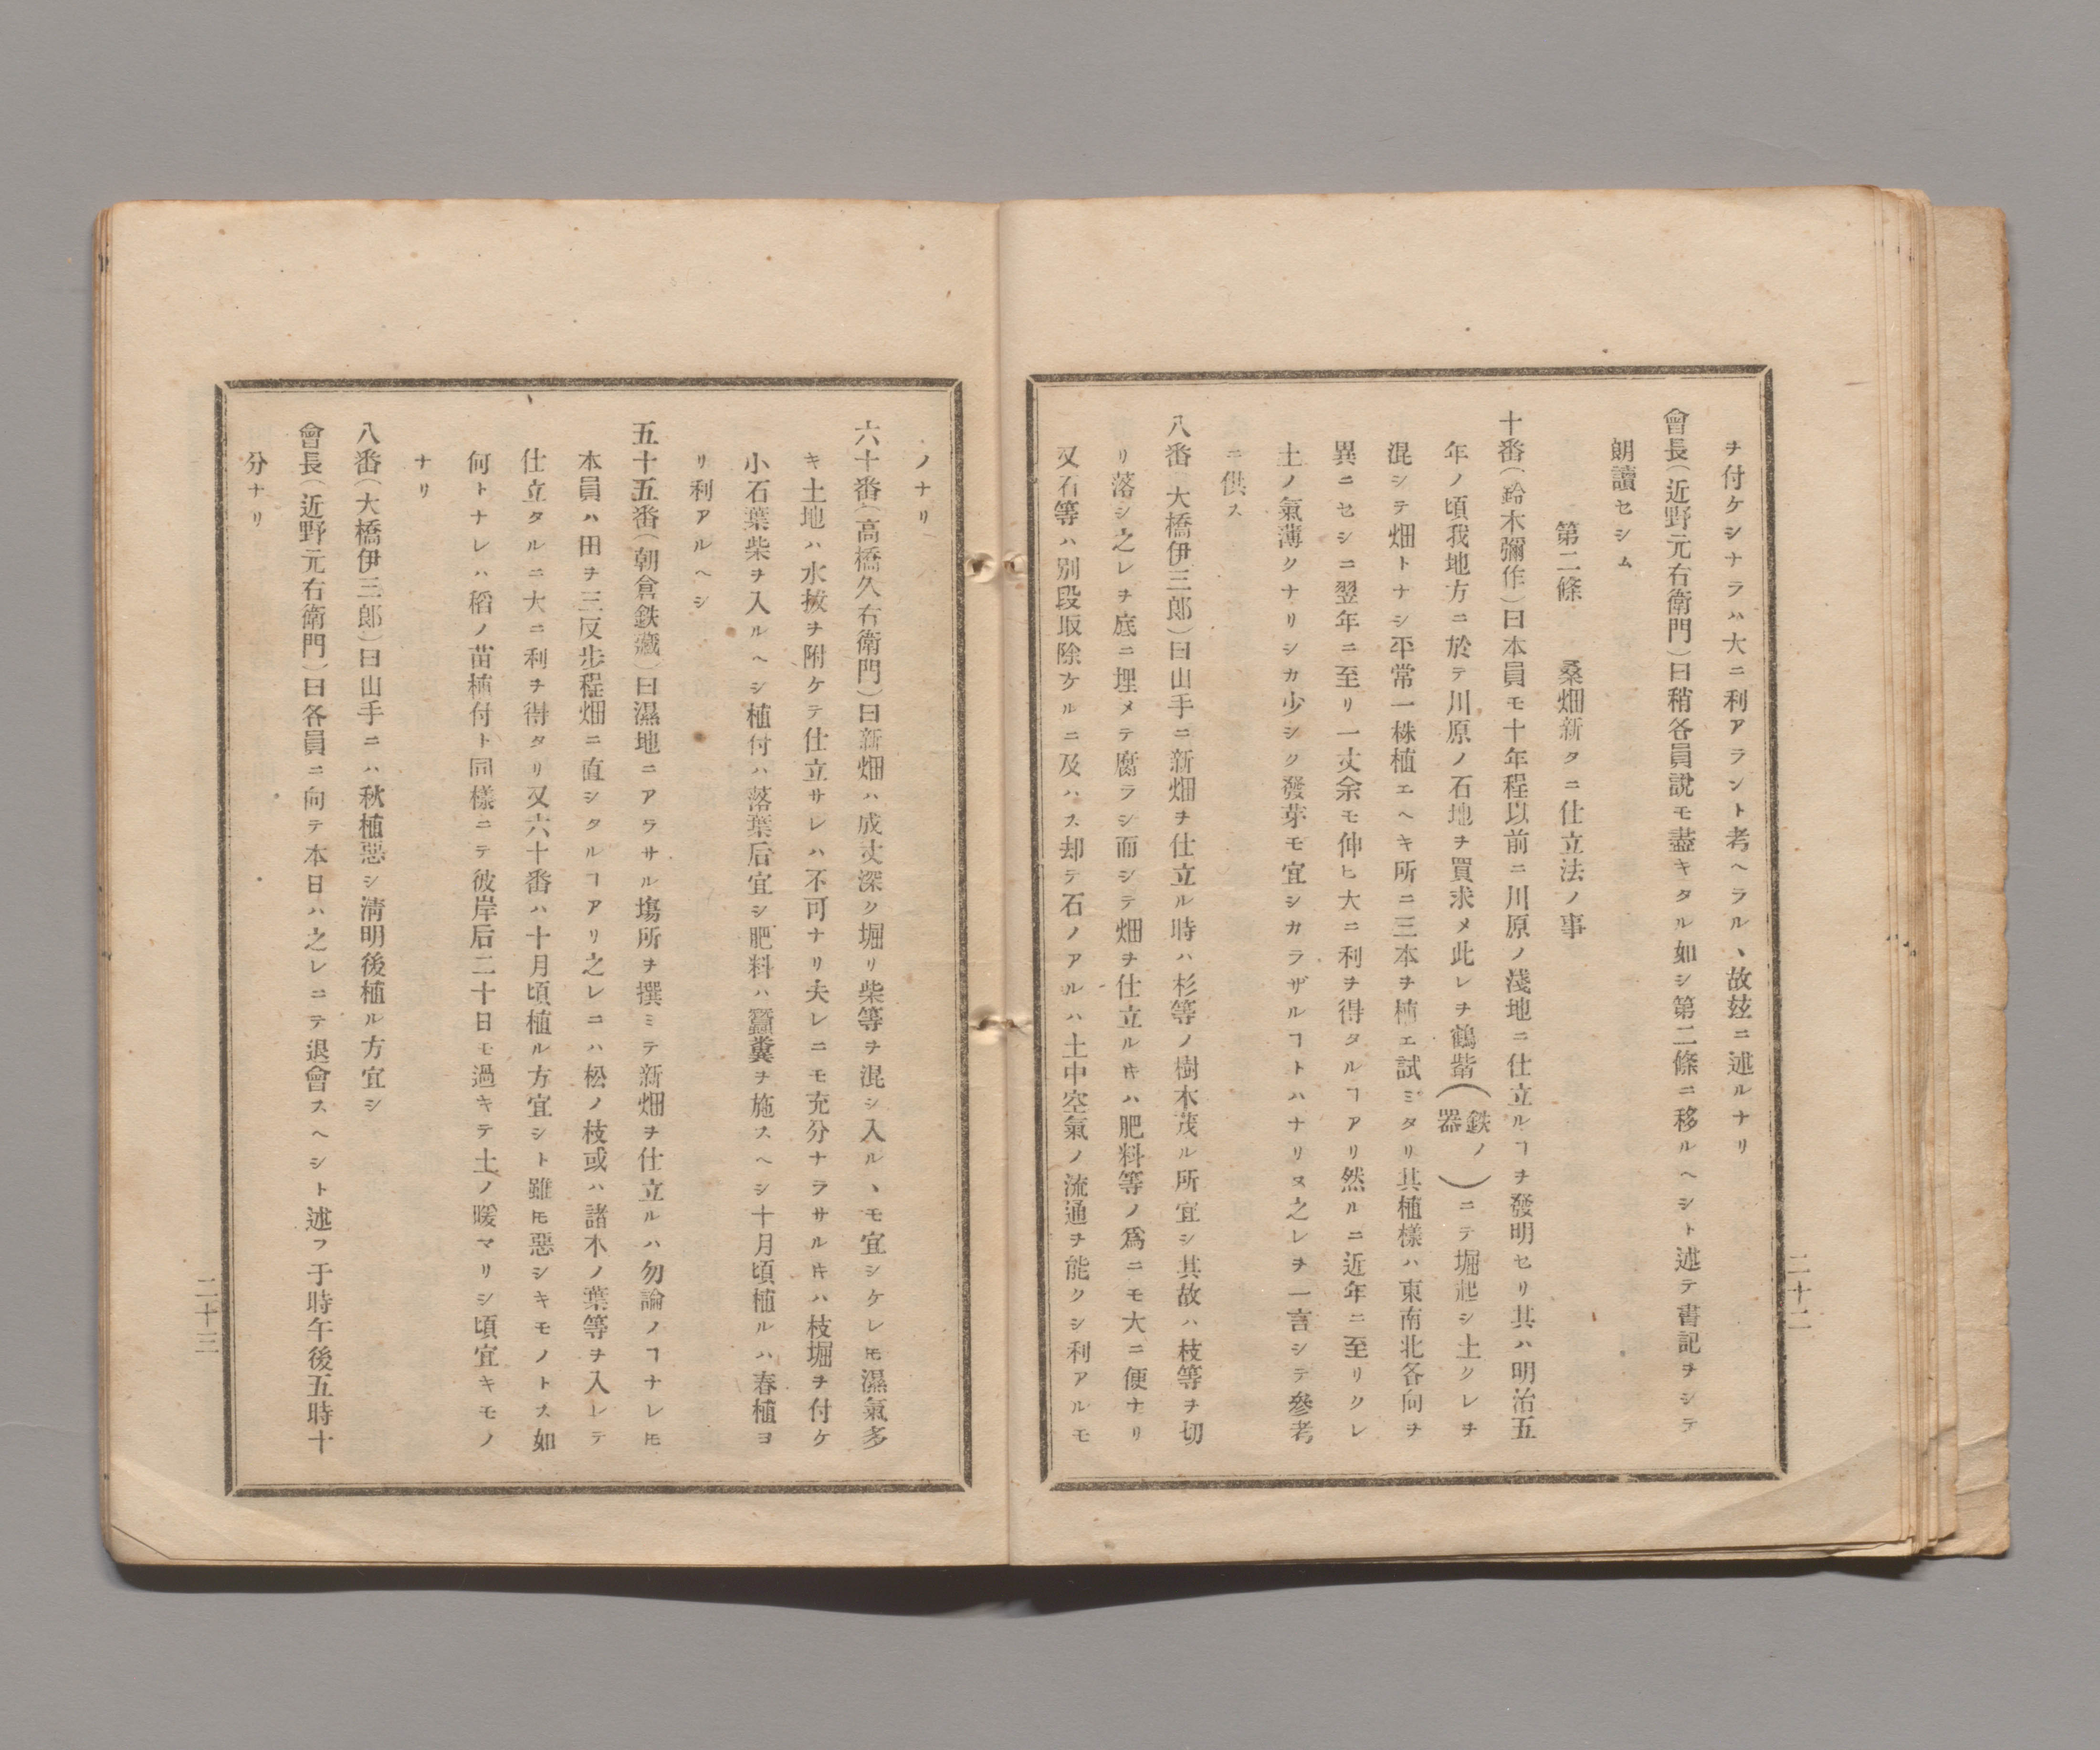 ヲ付ケシナラハ大ニ利アラント考ヘラルヽ故玆ニ述ルナリ
會長(近野元右衛門)曰稍各員説モ盡キタル如シ第二條ニ移ルヘシト述テ書記ヲシテ
朗讀セシム
第二條　桑畑新タニ仕立法ノ事
十番(鈴木彌作)曰本員モ十年程以前ニ川原ノ淺地ニ仕立ルヿヲ發明セリ其ハ明治五
年ノ頃我地方ニ於テ川原ノ石地ヲ買求メ此レヲ鶴觜(鉄ノ器)ニテ堀起シ土クレヲ
混シテ畑トナシ平常一株植エヘキ所ニ三本ヲ植エ試ミタリ其植樣ハ東南北各向ヲ
異ニセシニ翌年ニ至リ一丈余モ伸ヒ大ニ利ヲ得タルヿアリ然ルニ近年ニ至リクレ
土ノ氣薄クナリシカ少シク發芽モ宜シカラザルヿトハナリヌ之レヲ一言シテ參考
ニ供ス
八番(大橋伊三郎)曰山手ニ新畑ヲ仕立ル時ハ杉等ノ樹木茂ル所宜シ其故ハ枝等ヲ切
リ落シ之レヲ底ニ埋メテ腐ラシ而シテ畑ヲ仕立ルキハ肥料等ノ爲ニモ大ニ便ナリ
又石等ハ別段取除ケルニ及ハス却テ石ノアルハ土中空氣ノ流通ヲ能クシ利アルモ
二十二
ノナリ
六十番(高橋久右衛門)曰新畑ハ成丈深ク堀リ柴等ヲ混シ入ルヽモ宜シケレ𪜈濕氣多
キ土地ハ水抜ヲ附ケテ仕立サレハ不可ナリ夫レニモ充分ナラサルキハ枝堀ヲ付ケ
小石葉柴ヲ入ルヘシ植付ハ落葉后宜シ肥料ハ蠶糞ヲ施スヘシ十月頃植ルハ春植ヨ
リ利アルヘシ
五十五番(朝倉鉄藏)曰濕地ニアラサル塲所ヲ撰ミテ新畑ヲ仕立ルハ勿論ノヿナレ𪜈
本員ハ田ヲ三反步程畑ニ直シタルヿアリ之レニハ松ノ枝或ハ諸木ノ葉等ヲ入レテ
仕立タルニ大ニ利ヲ得タリ又六十番ハ十月頃植ル方宜シト雖𪜈惡シキモノトス如
何トナレハ稻ノ苗植付ト同樣ニテ彼岸后二十日モ過キテ土ノ暖マリシ頃宜キモノ
ナリ
八番(大橋伊三郎)曰山手ニハ秋植惡シ清明後植ル方宜シ
會長(近野元右衛門)曰各員ニ向テ本日ハ之レニテ退會スヘシト述フ于時午後五時十
分ナリ
二十三